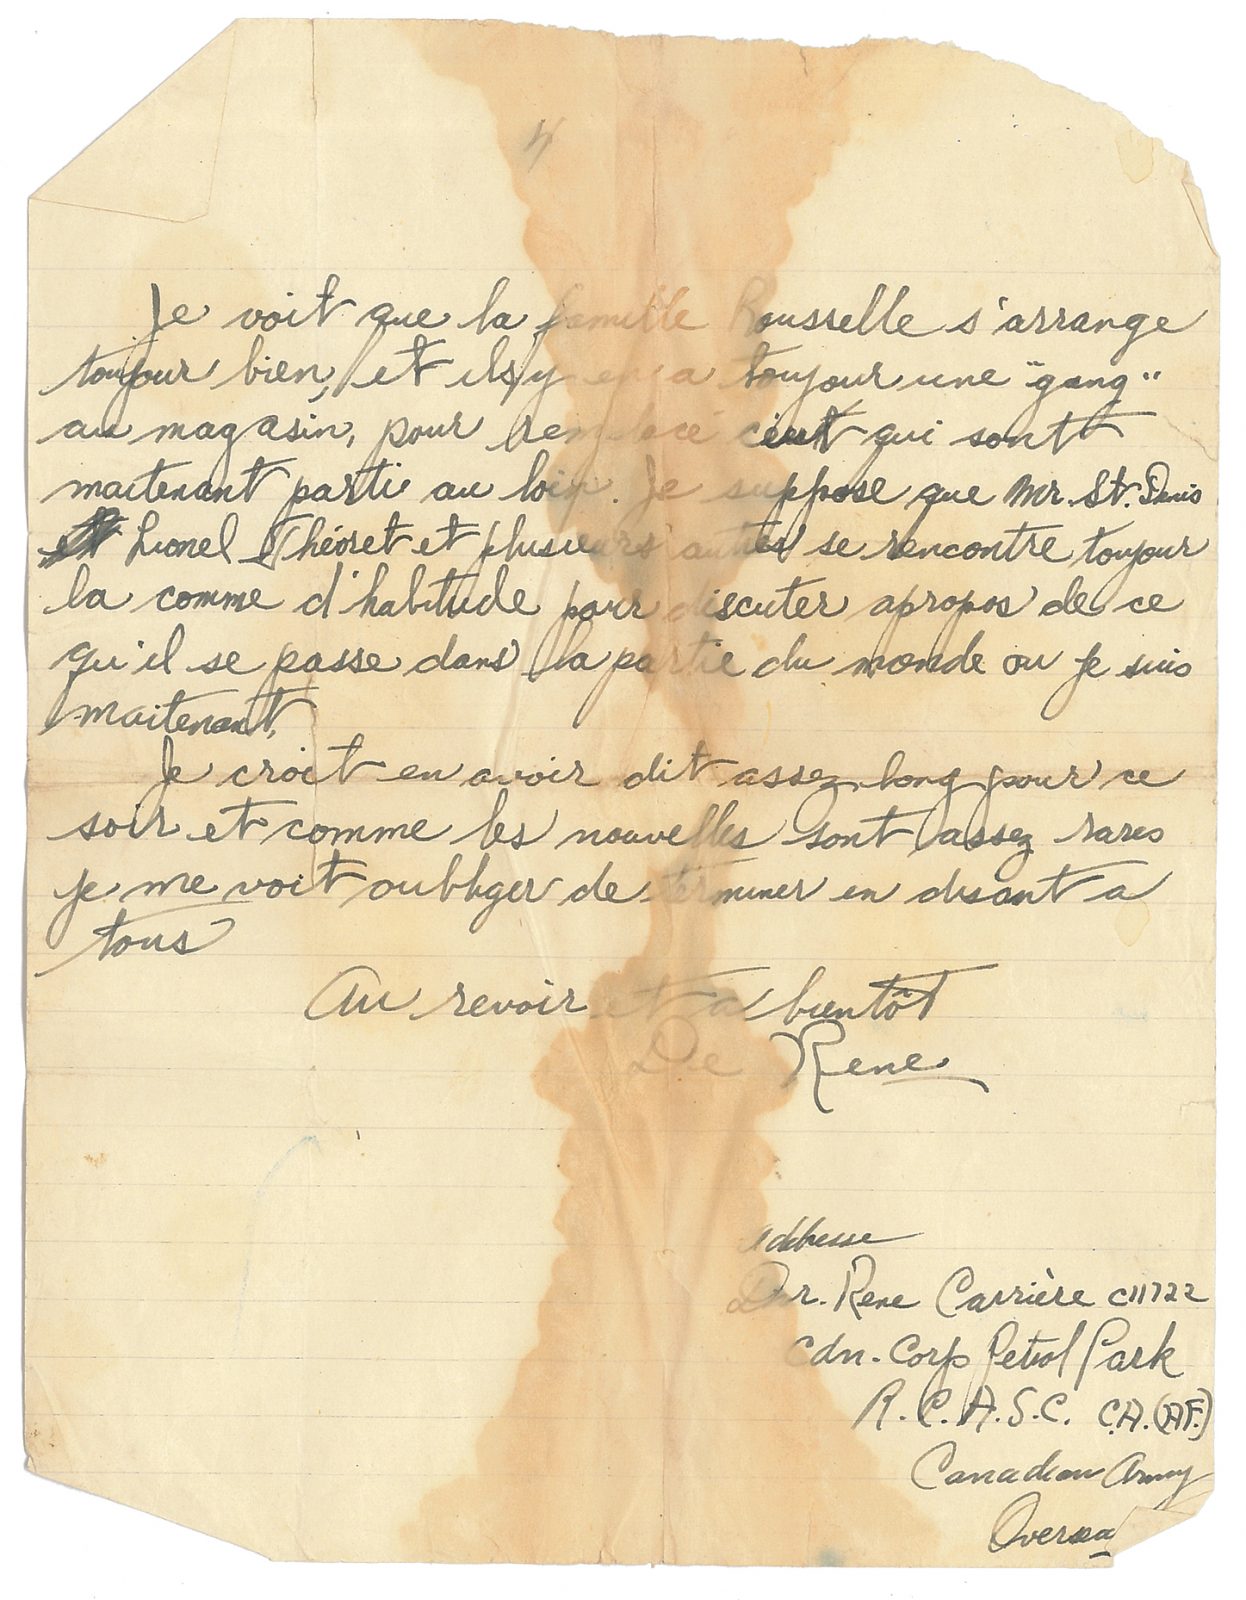 4
Je voit que la famille Rousselle s'arrange
toujour bien, et ils y en a toujour une "gang"
au magasin, pour remplacé ceut qui sont
maitenant parti au loin. Je suppose que Mr. St. Denis
et Lionel Théoret et plusieurs autres se rencontre toujour
la comme d'habitude pour discuter apropos de ce
qu'il se passe dans la partie du monde ou je suis
maitenant.
Je croit en avoir dit assez long pour ce
soir et comme les nouvelles sont assez rares
je me voit oubliger de terminer en disant a
tous
Au revoir et a bientôt
De Rene
Addresse
Dvr. Rene Carrière C11722
Cdn. Corp Petrol Park
R.C.A.S.C. C.A.(A.F.)
Canadian Army
Oversea